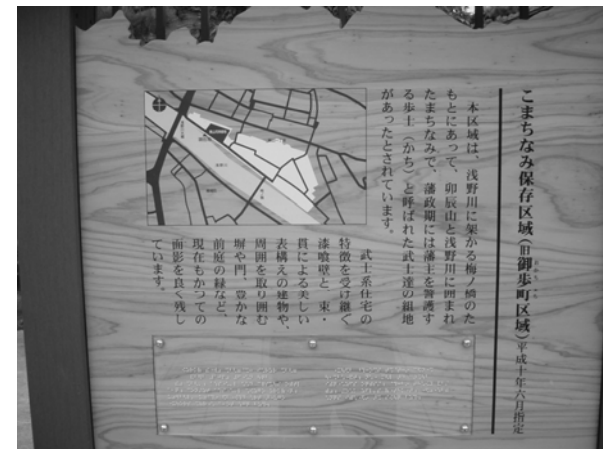 こまちなみ保存区域（旧御歩町区域）平成十年六月指定
本区域は、浅野川に架かる梅ノ橋のた
もとにあって、卯辰山と浅野川に囲まれ
たまちなみで、藩政期には藩主を警護す
る歩士（かち）と呼ばれた武士達の組地
があったとされています。
武士系住宅の
特徴を受け継ぐ
漆喰壁と、束・
貫による美しい
表構えの建物や、
周囲を取り囲む
塀や門、豊かな
前庭の緑など、
現在もかつての
面影を良く残し
ています。